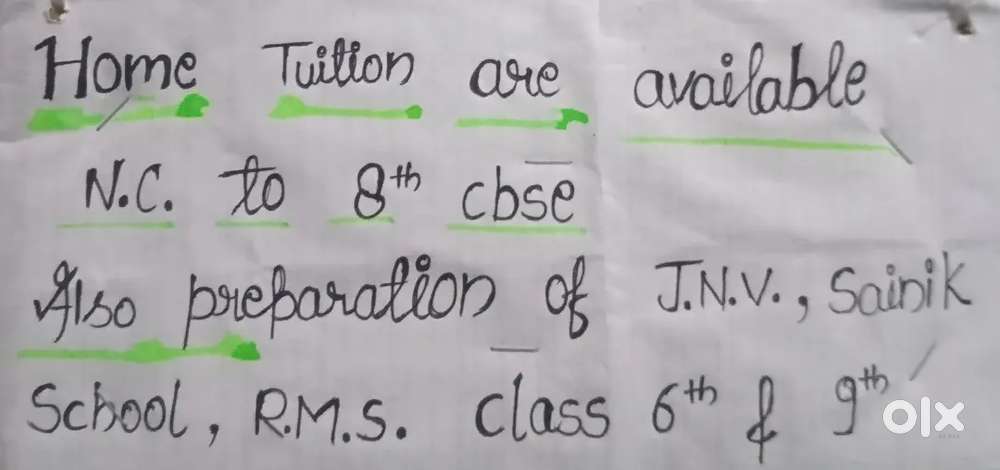 Home Tuition are available
N.C. to 8th cbse
Also preparation of J.N.V., Sainik
School, R.M.S. class 6th & 9th
olx